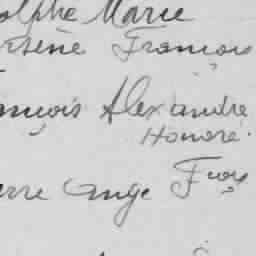 olphe Marie
rsène François
ançois Alexandre
Honoré.
erre Ange Fçois